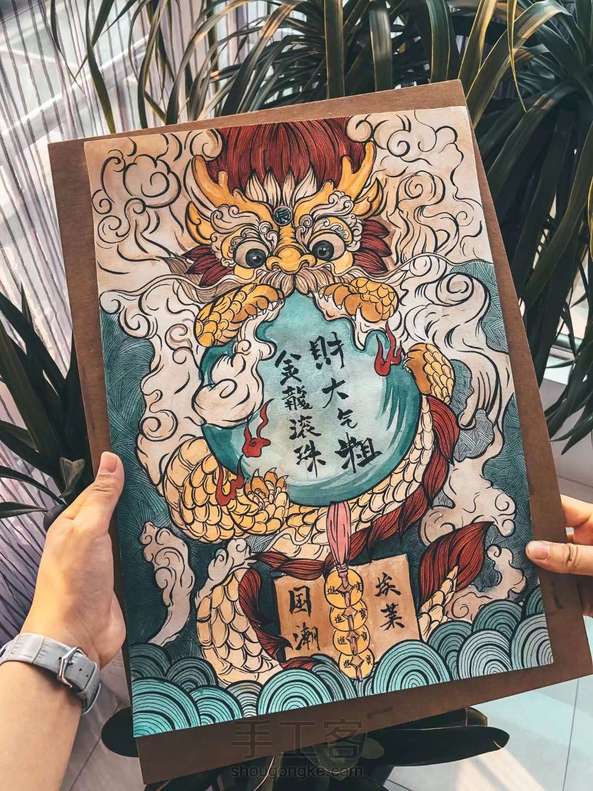 財大气粗
金龍滚珠
国潮
手工客
shougongke.com